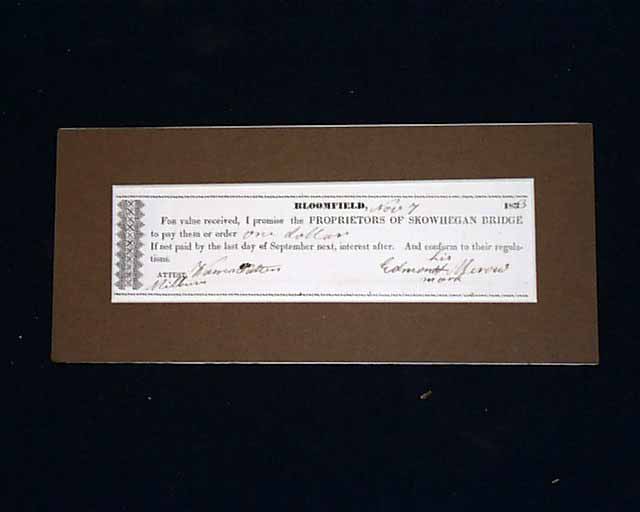 BLOOMFIELD, Nov 7 1833
For value received, I promise the PROPRIETORS OF SKOWHEGAN BRIDGE
to pay them or order one dollar
If not paid by the last day of September next, interest after. And conform to their regula-
tions.
his
ATTEST, Edmond Merow
mark
Milburn